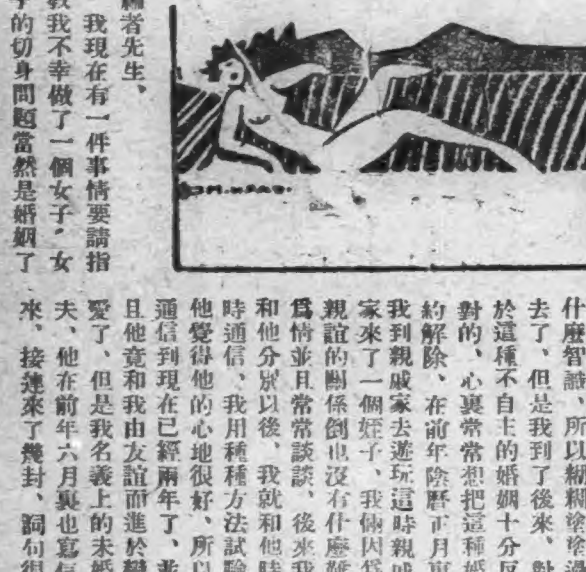 編者先生、
我現在有一件事情要請指
教我不幸做了一個女子，女
子的切身問題當然是婚姻了
什麼智識、所以糊糊塗塗過
去了、但是我到了後來、對
於這種不自主的婚姻十分反
對的、心裏常常想把這種婚
約解除、在前年陰曆正月裏
我到親戚家去遊玩這時親戚
家來了一個姪子、我倆因爲
親誼的關係倒也沒有什麼難
爲情並且常常談談、後來我
和他分別以後、我就和他時
時通信、我用種種方法試驗
他覺得他的心地很好、所以
通信到現在已經兩年了、並
且他竟和我由友誼而進於戀
愛了、但是我名義上的未婚
夫、他在前年六月裏也寫信
來、接連來了幾封、詞句很